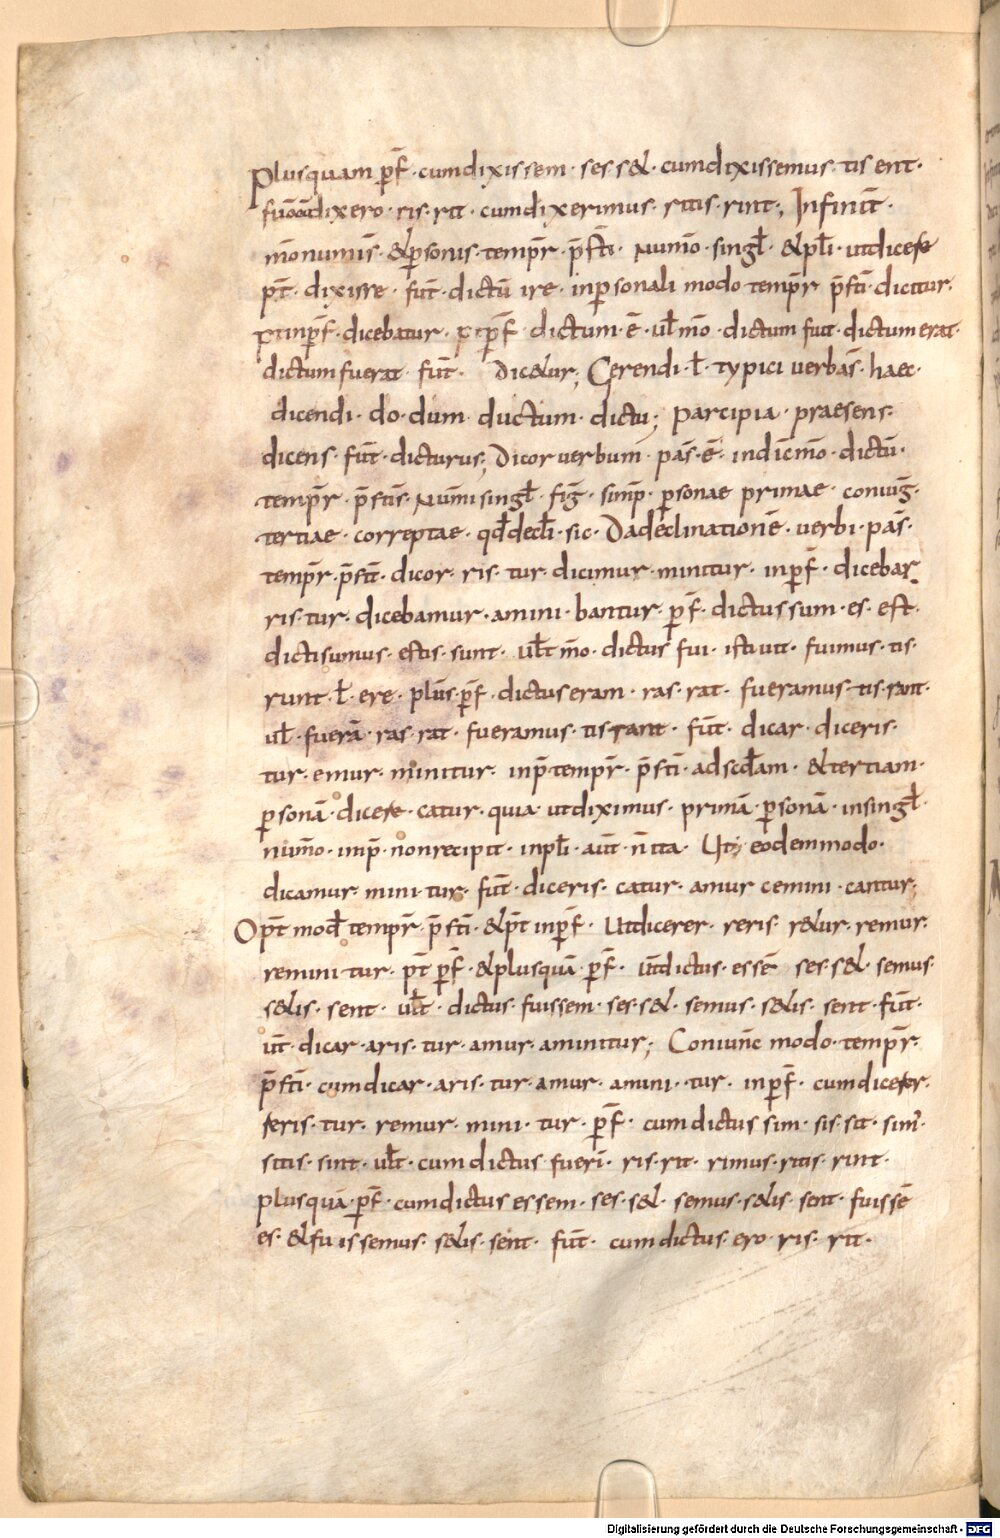 Plusquam p̄f · cumdixissem · ses · s& · cumdixissemus · tis ent ·
dixero · ris · rit · cumdixerimus · ritis · rint ; Infinit̄ ·
mō numīs · & p̄sonis · temp̄r · p̄sti · Numō · singl̄ · & pl̄i · utdicere
pt̄ · dixisse · fut̄ · dictū ire · inpersonali modo temp̄r p̄sti · dicitur ·
pt inp̄f · dicebatur · pt p̄f dictum · ē · ul̄ mō · dictum fuit · dictum erat ·
dictum fuerat fut̄ · Dic&ur ; Gerendi · l̄ · typici verba s̄ · haec ·
dicendi · do · dum dictum · dictu ; participia · praesens ·
dicens · fut̄ · dicturus ; Dicor verbum · pas̄ · ē · indic̄ mō · dictū ·
temp̄r · p̄stis · Numī singl̄ · fiḡ · simp̄ · p̄sonae primae · coniuḡ ·
tertiae · correptae · qd̄ decl̄i · sic · Da declinationē · verbi · pas̄ ·
temp̄r · p̄sti · dicor · ris · tur · dicimur · minitur · inp̄f · dicebar
ris · tur · dicebamur · amini · bantur · p̄f · dictus sum · es · est ·
dicti sumus · estis · sunt · ul̄t mō · dictus fui · isti uit · fuimus · tis ·
runt · l̄ · ere · plus · p̄f · dictus eram · ras · rat · fueramus · tis · rant ·
ul̄ · fuerā · ras · rat · fueramus · tis · rant · fut̄ · dicar · diceris ·
tur · emur · minitur · inp̄ · temp̄r · p̄sti · adscd̄am · & tertiam ·
p̄sonā · dicere · catur · quia · utdiximus · primā · p̄sonā · insingl̄ ·
numō · inp̄ · nonrecipit · inpl̄i · aut̄ · n̄ ita · Ut ; eodemmodo ·
dicamur · mini · tur · fut̄ · diceris · catur · amur cemini · cantur ;
Opt̄ mod̄ temp̄r · p̄sti · & pt̄ inp̄f · Utdicerer · reris · r&ur · remur ·
remini · tur · pt̄ p̄f · & plusquā · p̄f · ut̄ dictus · essē ses · s& · semus ·
s&is · sent · ul̄t · dictus · fuissem · ses · s& · semus · s&is · sent · fut̄ ·
ut̄ · dicar · aris · tur · amur · aminitur ; Coniunc̄ modo · temp̄r ·
p̄sti · cumdicar · aris · tur · amur · amini · tur · inp̄f · cumdicerer ·
reris · tur · remur · mini · tur · p̄f · cum dictus sim · sis · sit · sim' ·
sitis · sint · ul̄t · cum dictus fueri · ris · rit · rimus · ritis · rint ·
plusquā · p̄f · cumdictus essem · ses · s& · semus · s&is · sent · fuissē
es · & fuissemus · s&is · sent · fut̄ · cum dictus · ero · ris · rit ·
Digitalisierung gefördert durch die Deutsche Forschungsgemeinschaft - DFG